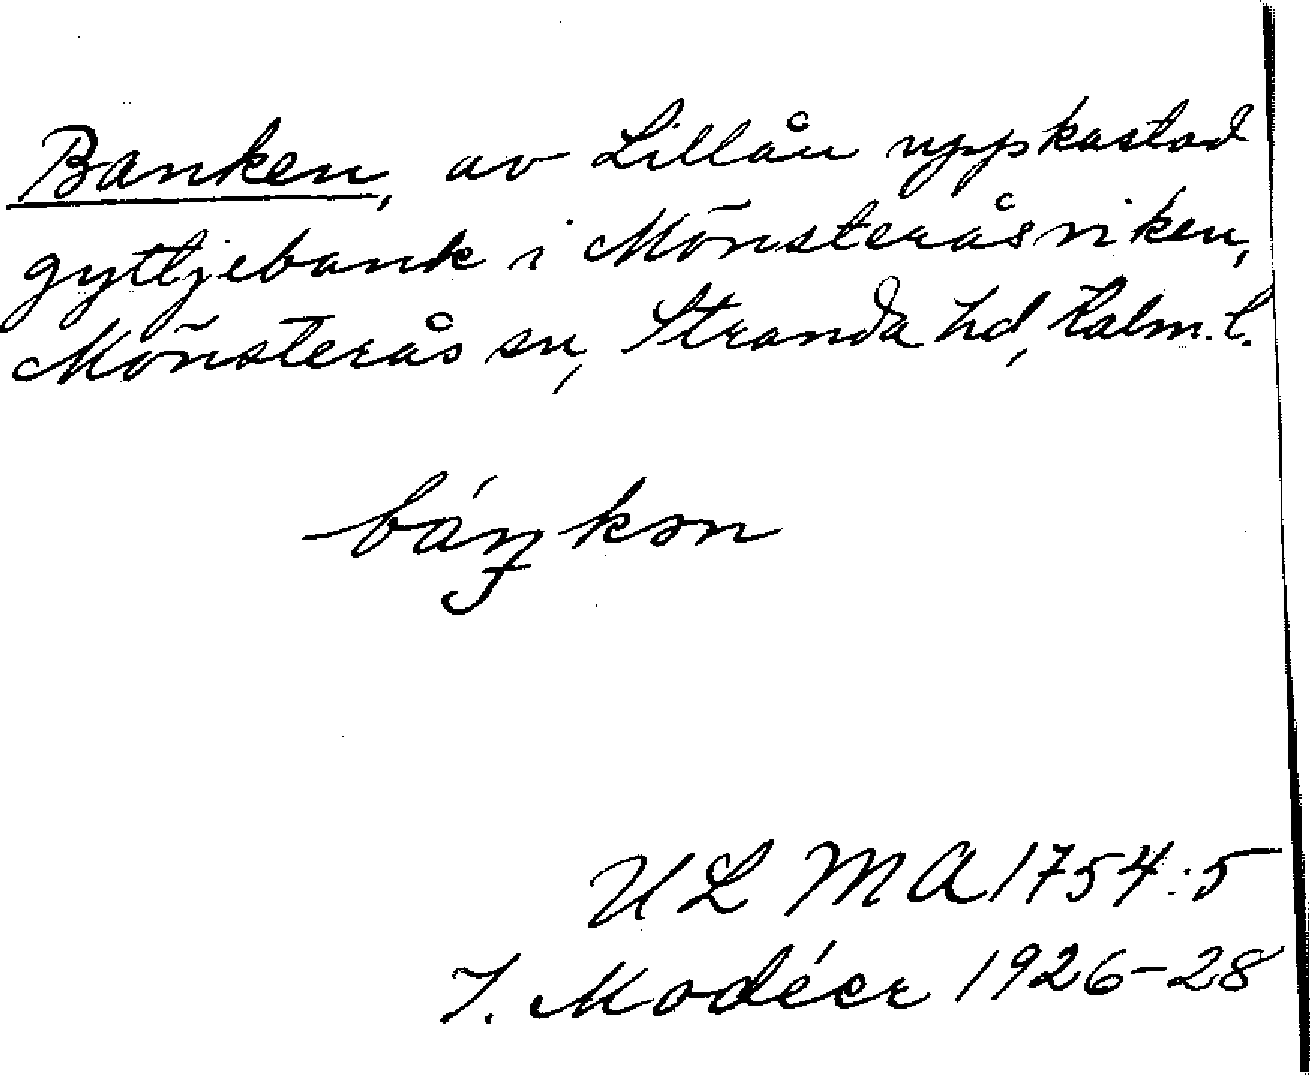 Banken, av Lillån uppkastad
gyttjebank i Mönsteråsviken,
Mönsterås sn, Stranda hd, Kalm. l.
báŋkən
ULMA 1754:5
I. Modéer 1926-28